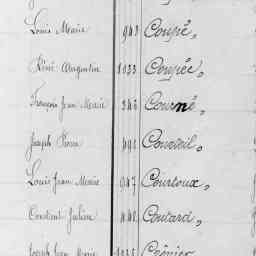 Louis Marie 943 Coupé,
René Augustin 1033 Coupée,
François Jean Marie 346 Courné,
Joseph Pierre Courteil,
Louis Jean Marie 947 Courtoux,
Constant Julien Coutard,
Joseph Jean Marie Crénier